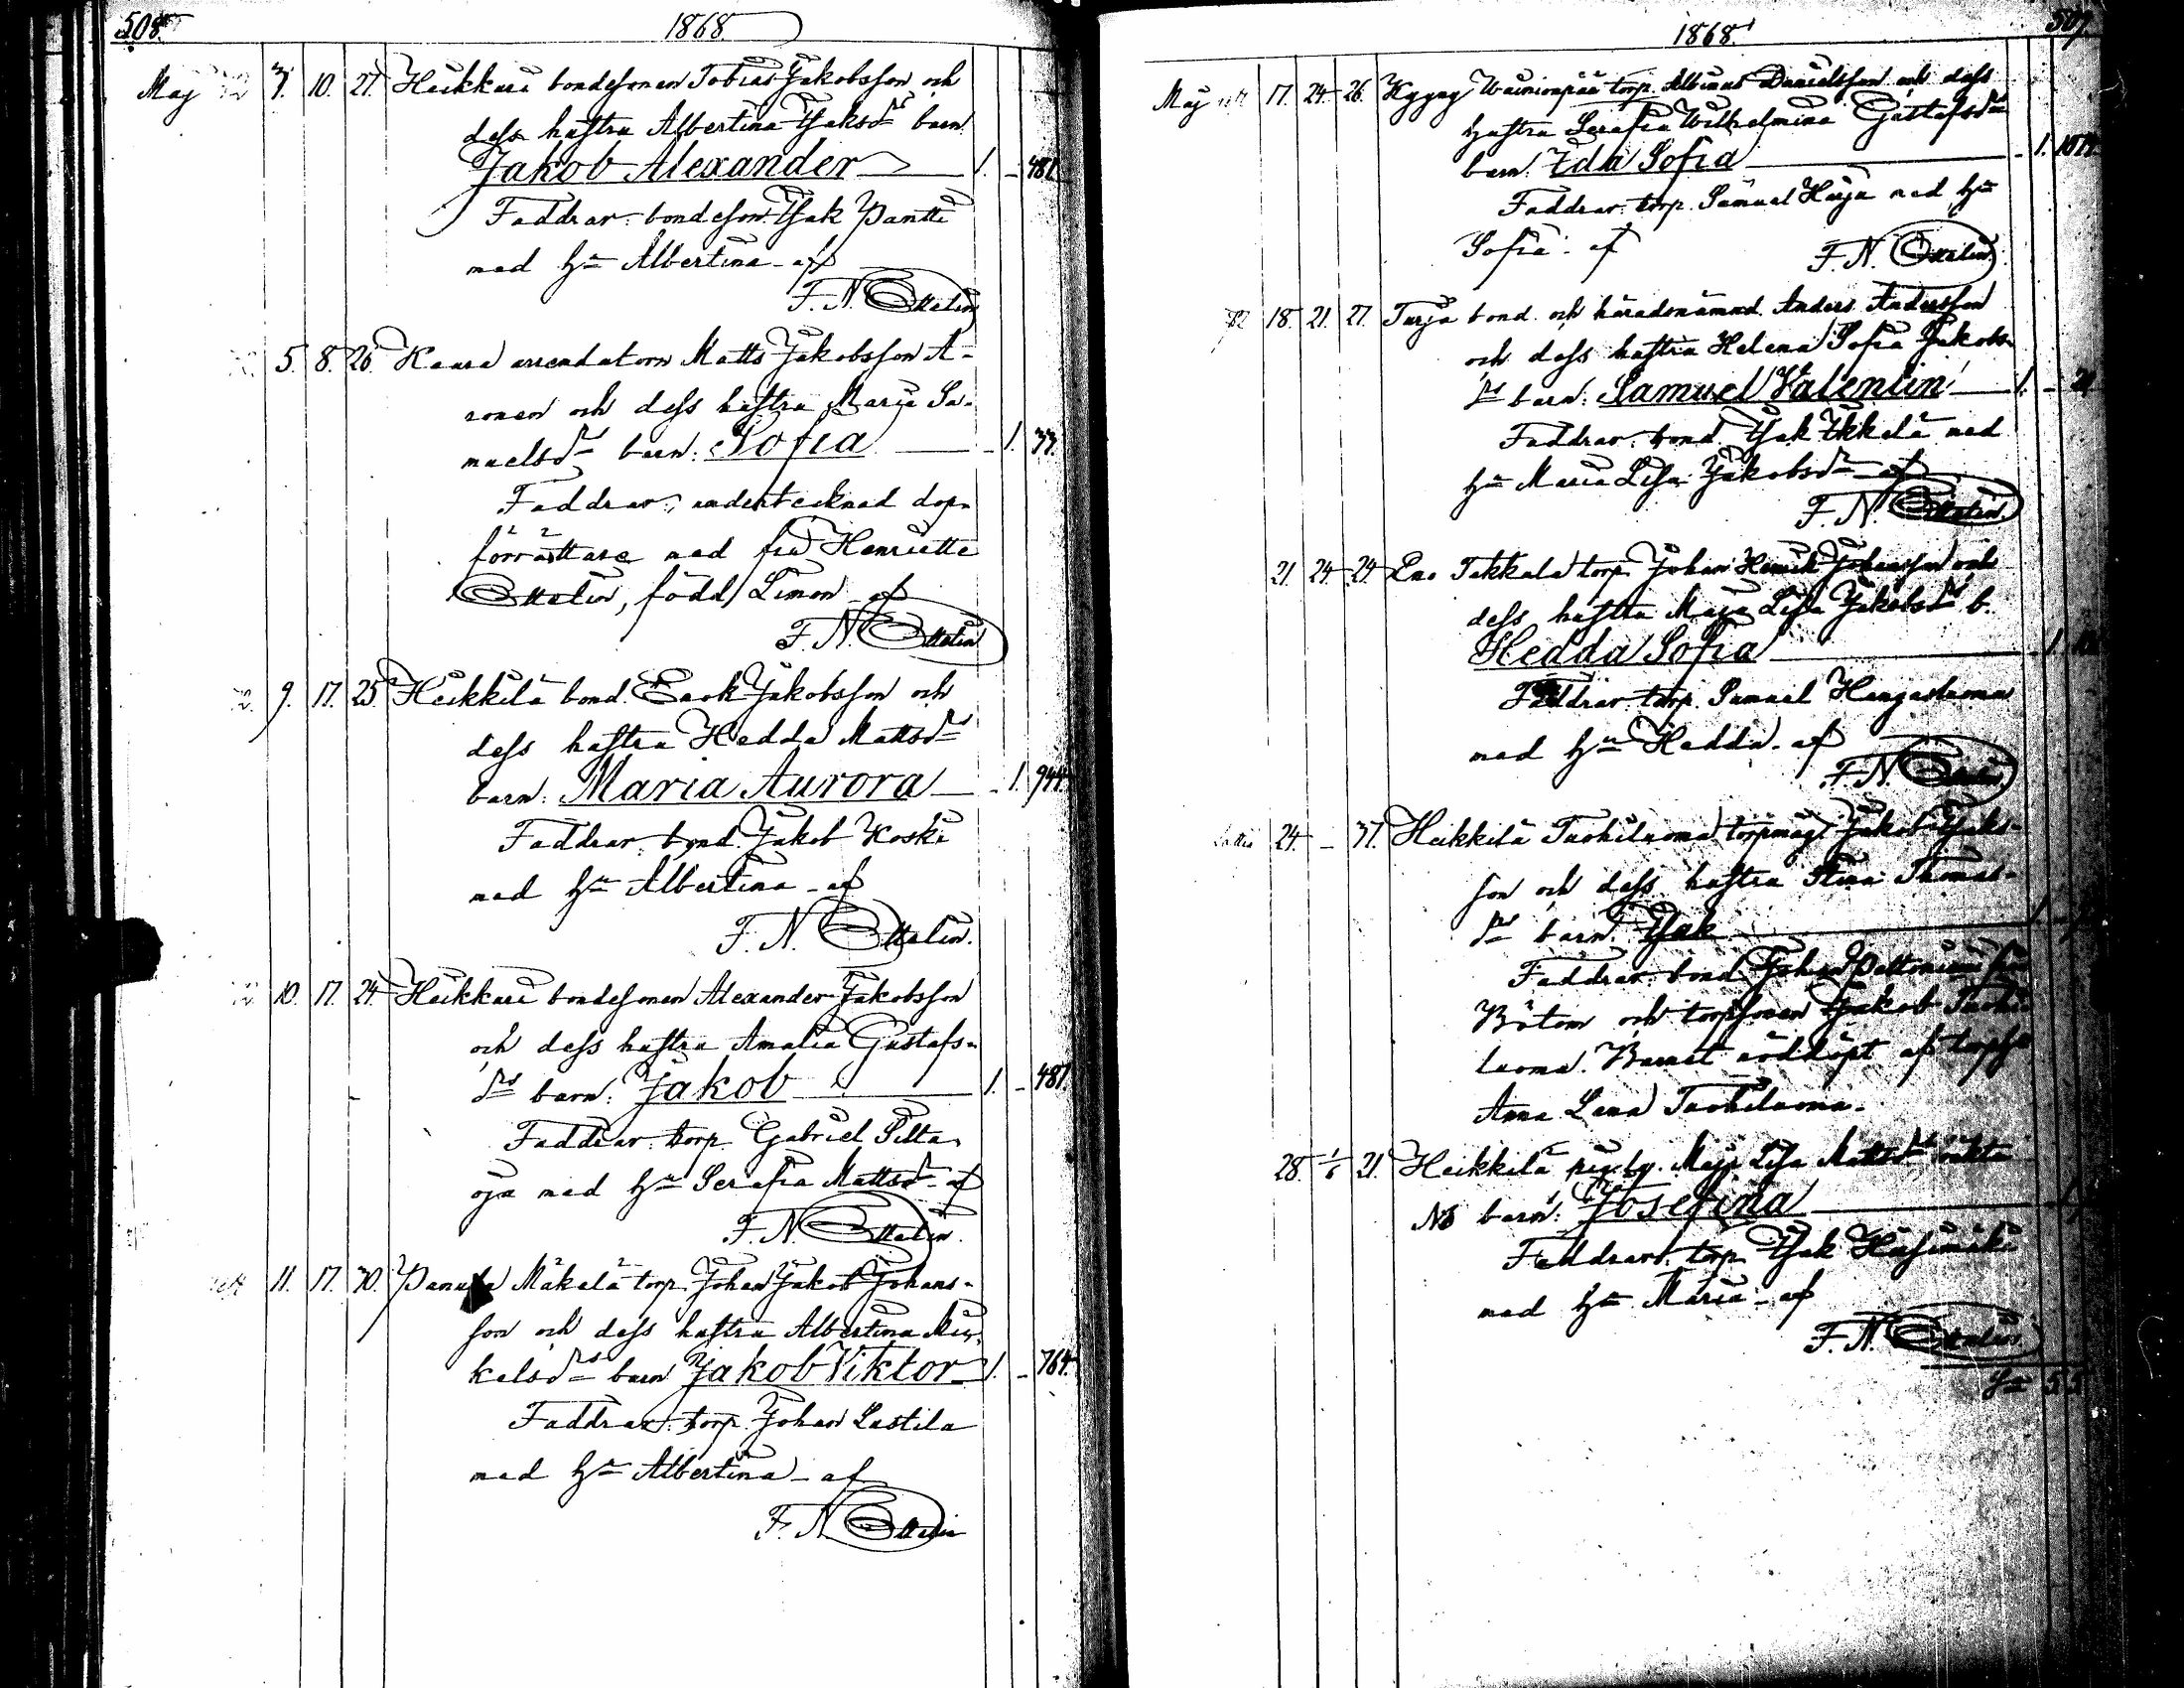 508.
1868.
Maj 3. 10. 27. Heikkari bondesonen Tobias Jakobsson och
dess hustru Albertina Isaksdrs barn
Jakob Alexander 1. 481.
Faddrar: bondeson Isak Pantti
med hu Albertina af
F. N. Ottelin
5. 8. 26. Kaura arrendatorn Matts Jakobsson A-
ronen och dess hustru Maria Sa-
muelsdrs barn: Sofia 1. 33.
Faddrar: undertecknad dop-
förrättare med fru Henriette
Ottelin, född Limon af
F. N. Ottelin
9. 17. 25. Heikkilä bond. Enok Jakobsson och
dess hustru Hedda Mattsdrs
barn: Maria Aurora 1. 944.
Faddrar: bond. Jakob Koski
med hu Albertina af
F. N. Ottelin.
10. 17. 24. Heikkari bondesonen Alexander Jakobsson
och dess hustru Amalia Gustafs-
drs barn: Jakob 1. 481.
Faddrar: torp. Gabriel Pilta
oja med hu Serafia Mattsdr af
F. N. Ottelin.
11. 17. 30. Panula Mäkelä torp. Johan Jakob Johans-
son och dess hustru Albertina Mi-
kelsdrs barn Jakob Viktor 1. 764.
Faddrar: torp. Johan Lastila
med hu Albertina af
F. N. Ottelin
507.
1868.
Maj 17. 24. 26. Wainionpää torp. Albinus Danielsson och dess
hustru Serafia Wilhelmina Gustafsdrs
barn: Ida Sofia 1.
Faddrar: torp. Samuel Harja med hu
Sofia af
F. N. Ottelin.
18. 21. 27. Turja bond. och häradsnämnd. Anders Andersson
och dess hustru Helena Sofia Jakobs-
drs barn: Samuel Valentin 1.
Faddrar: bond. Isak Ikkelä med
hu Maria Lisa Jakobsdr af
F. N. Ottelin.
21. 24. 29. Eno Takkala torp. Johan Henrik Johansson och
dess hustru Maja Lisa Jakobsdrs b.
Hedda Sofia 1.
Faddrar: torp. Samuel Hangasluoma
med hu Hedda af
F. N. Ottelin
24. – 37. Heikkilä Tuohiluoma torpmåg Jakob Isaks-
son och dess hustru Stina Thomas-
drs barn: Isak
Faddrar: bond. Johan Peltoniemi från
Bötom och torpsonen Jakob Tuohi-
luoma. Barnet nöddöpt af torphu
Anna Lena Tuohiluoma.
28. 1/6 21. Heikkilä pig. Maja Lisa Mattsdrs oäkta
barn: Josefina
Faddrar: torp. Isak Harjumäki
med hu Maria af
F. N. Ottelin.